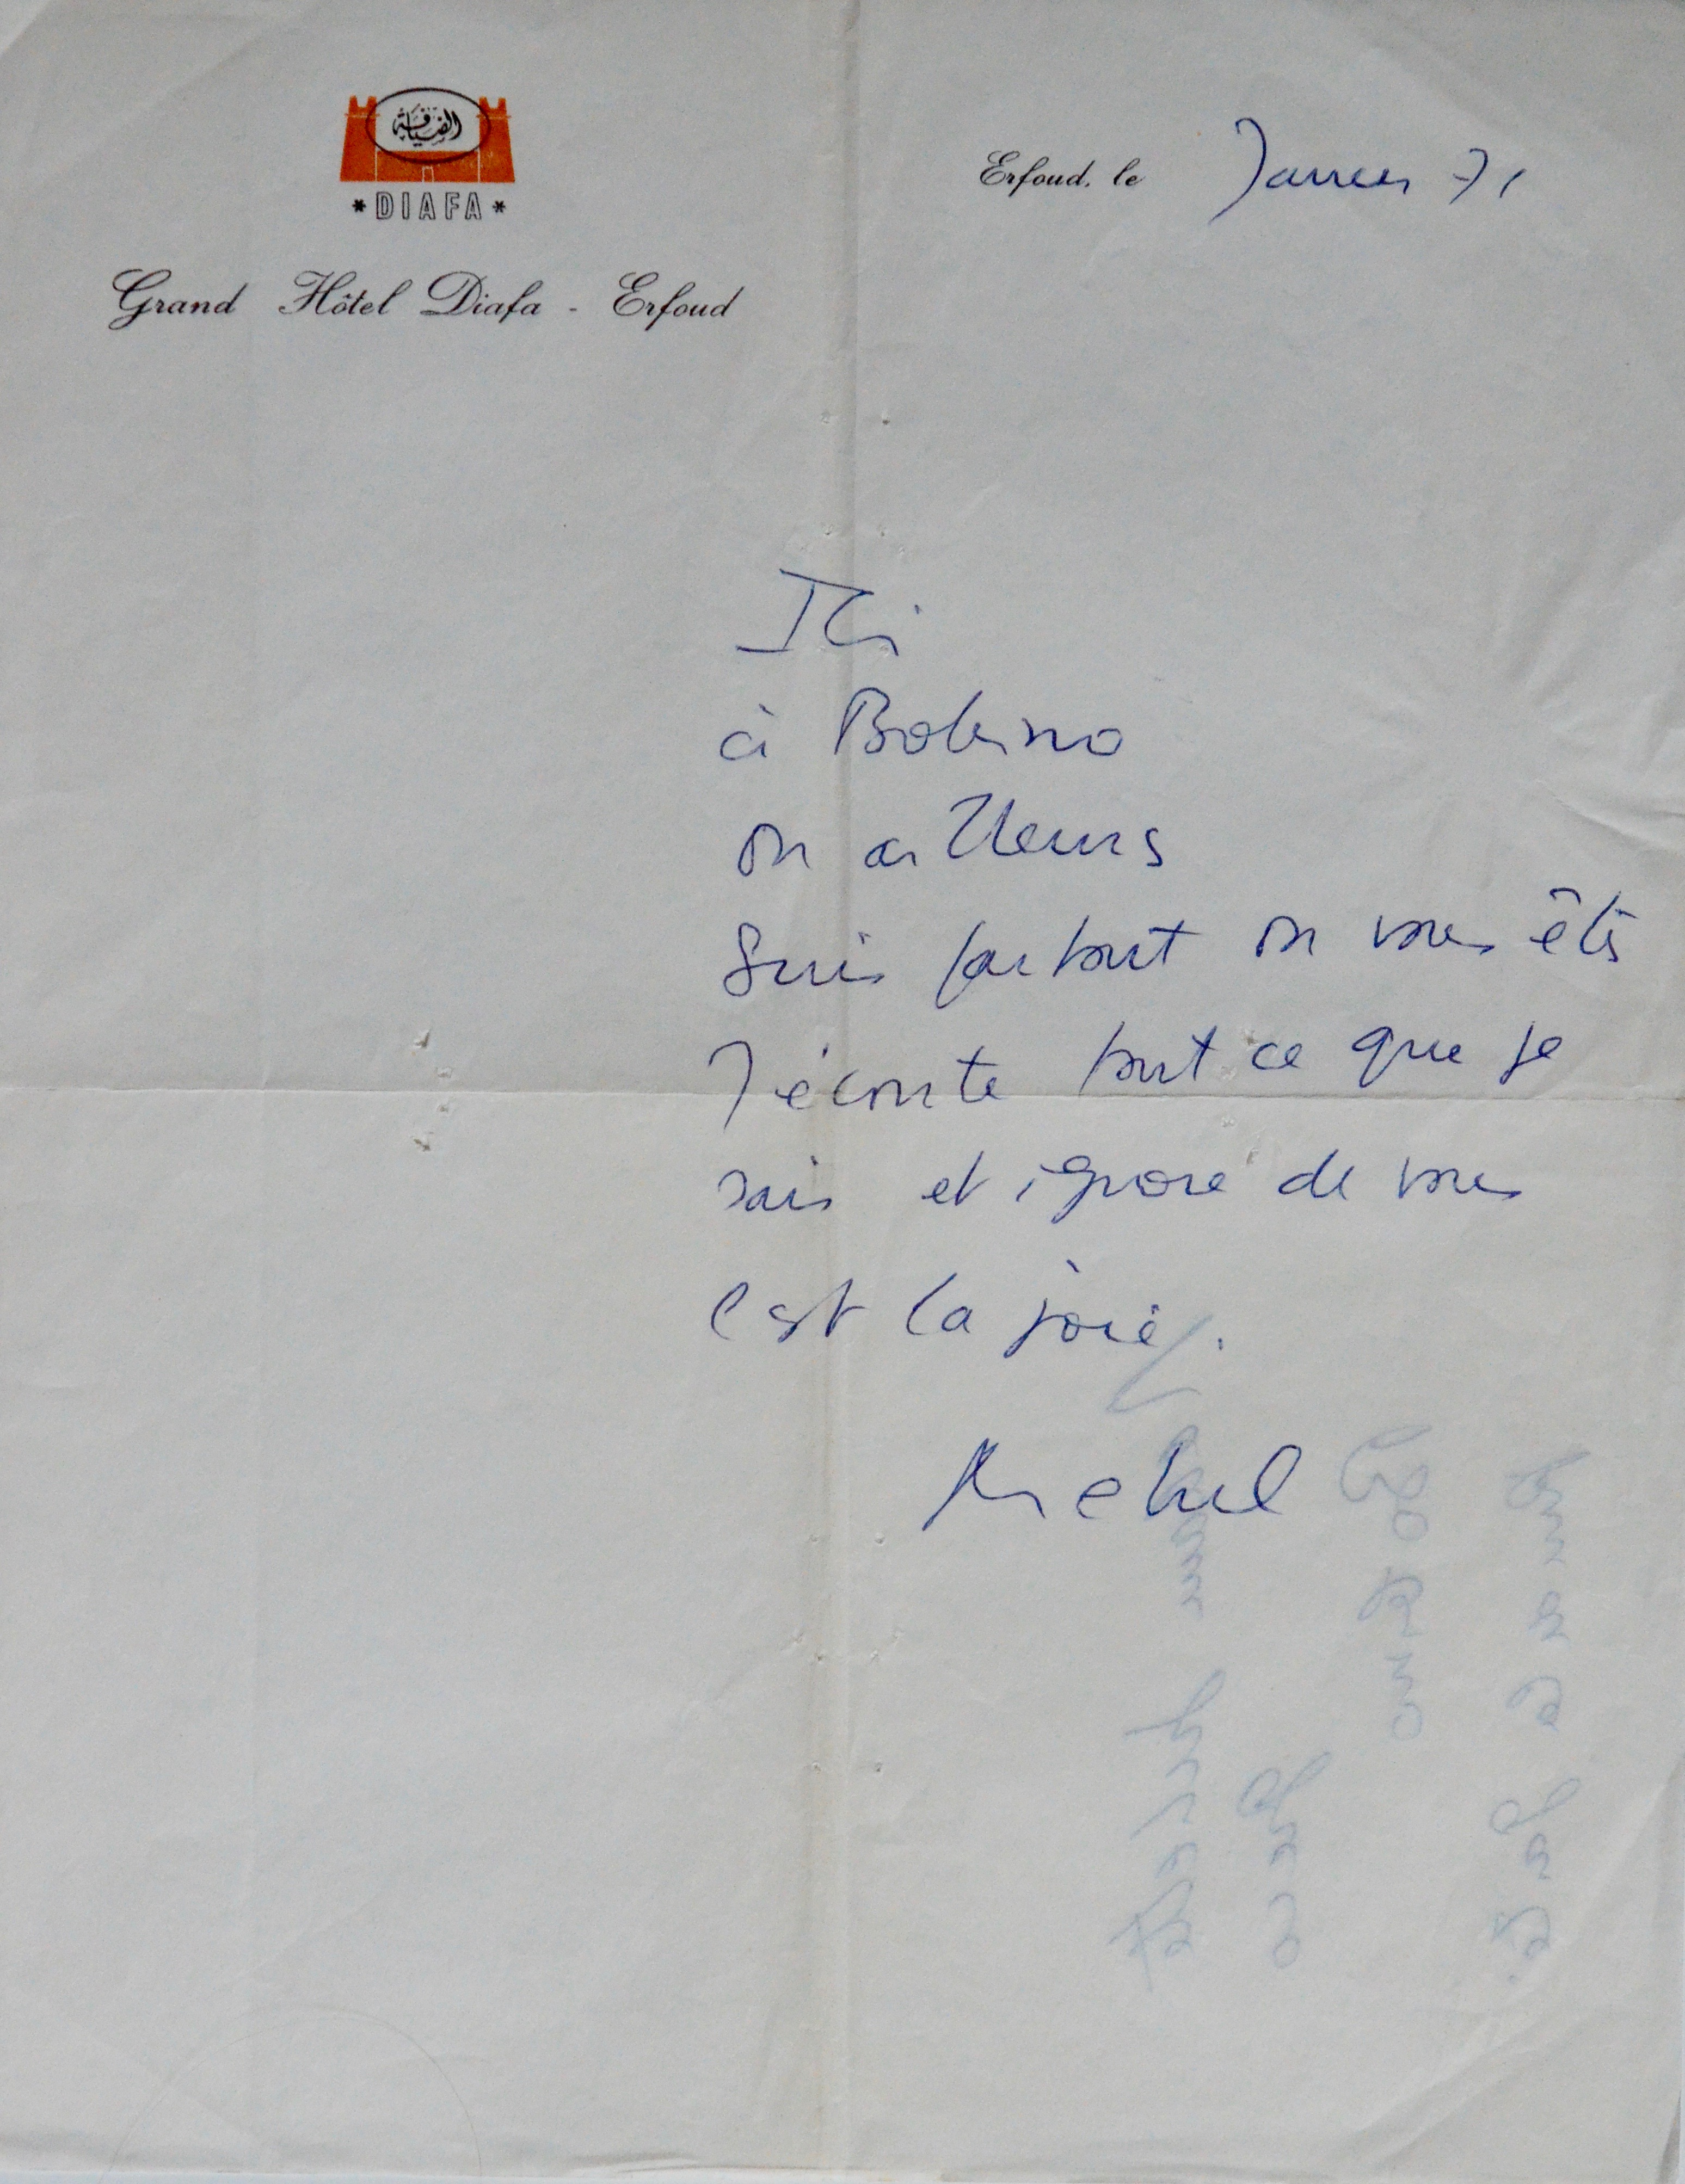 الضيافة
* DIAFA *
Grand Hôtel Diafa - Erfoud
Erfoud, le Janvier 71
Ici
à Bobino
ou ailleurs
suis partout où vous êtes
J'écoute tout ce que je
sais et ignore de vous
c'est la joie.
Michel